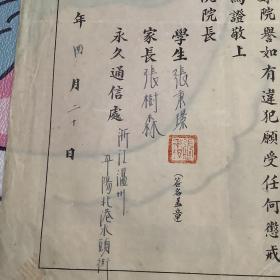 院譽如有違犯願受任何懲戒
為證敬上
院院長
學生張秉璨
(簽名蓋章)
家長張樹森
永久通信處浙江溫州
平陽北港水頭街
年四月二十日